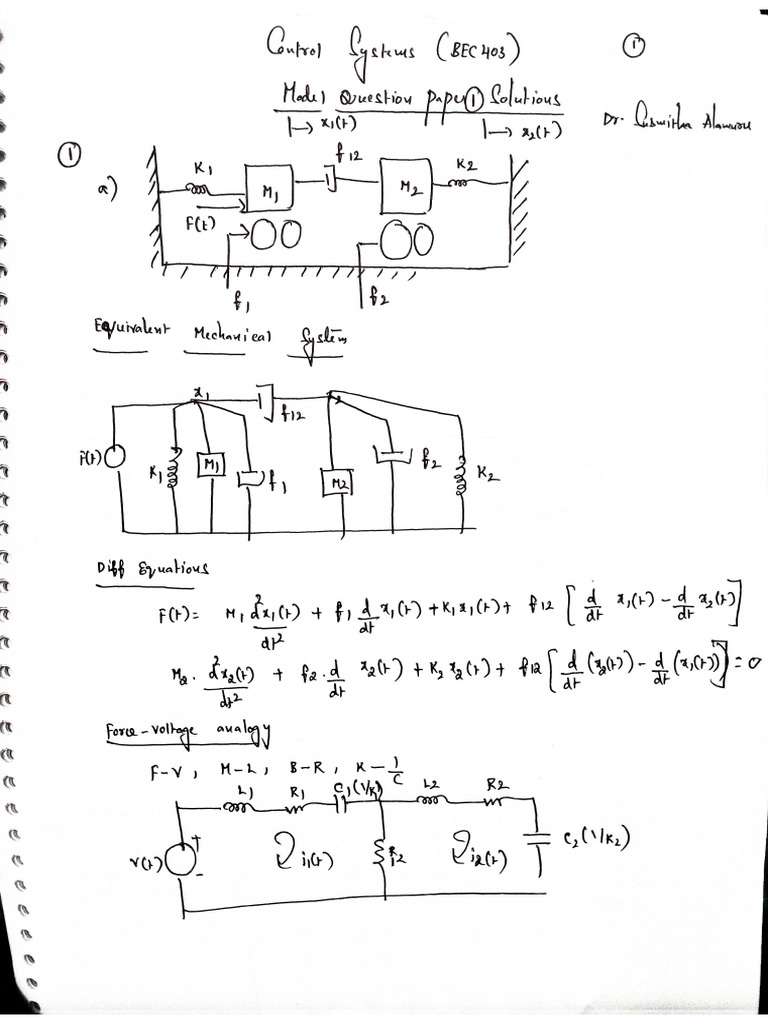 Control Systems (BEC403) ①
Model Question paper ① Solutions
Dr. Susmitha
① a)
x₁(t) x₂(t)
K₁ M₁ f₁₂ M₂ K₂
F(t)
f₁ f₂
Equivalent Mechanical System
x₁ f₁₂ x₂
F(t) K₁ M₁ f₁ M₂ f₂ K₂
Diff Equations
F(t) = M₁ d²x₁(t)/dt² + f₁ d/dt x₁(t) + K₁x₁(t) + f12 [d/dt x₁(t) − d/dt x₂(t)]
M₂. d²x₂(t)/dt² + f₂. d/dt x₂(t) + K₂ x₂(t) + f12 [d/dt (x₂(t)) − d/dt (x₁(t))] = 0
Force-voltage analogy
F-V, M-L, B-R, K-1/C
L₁ R₁ C₁(1/K₁) L₂ R₂
V(t) + - i₁(t) i₂(t) C₂(1/K₂)